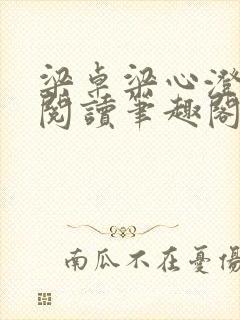 梁卓梁心澄
閱讀筆趣閣
南瓜不在憂傷